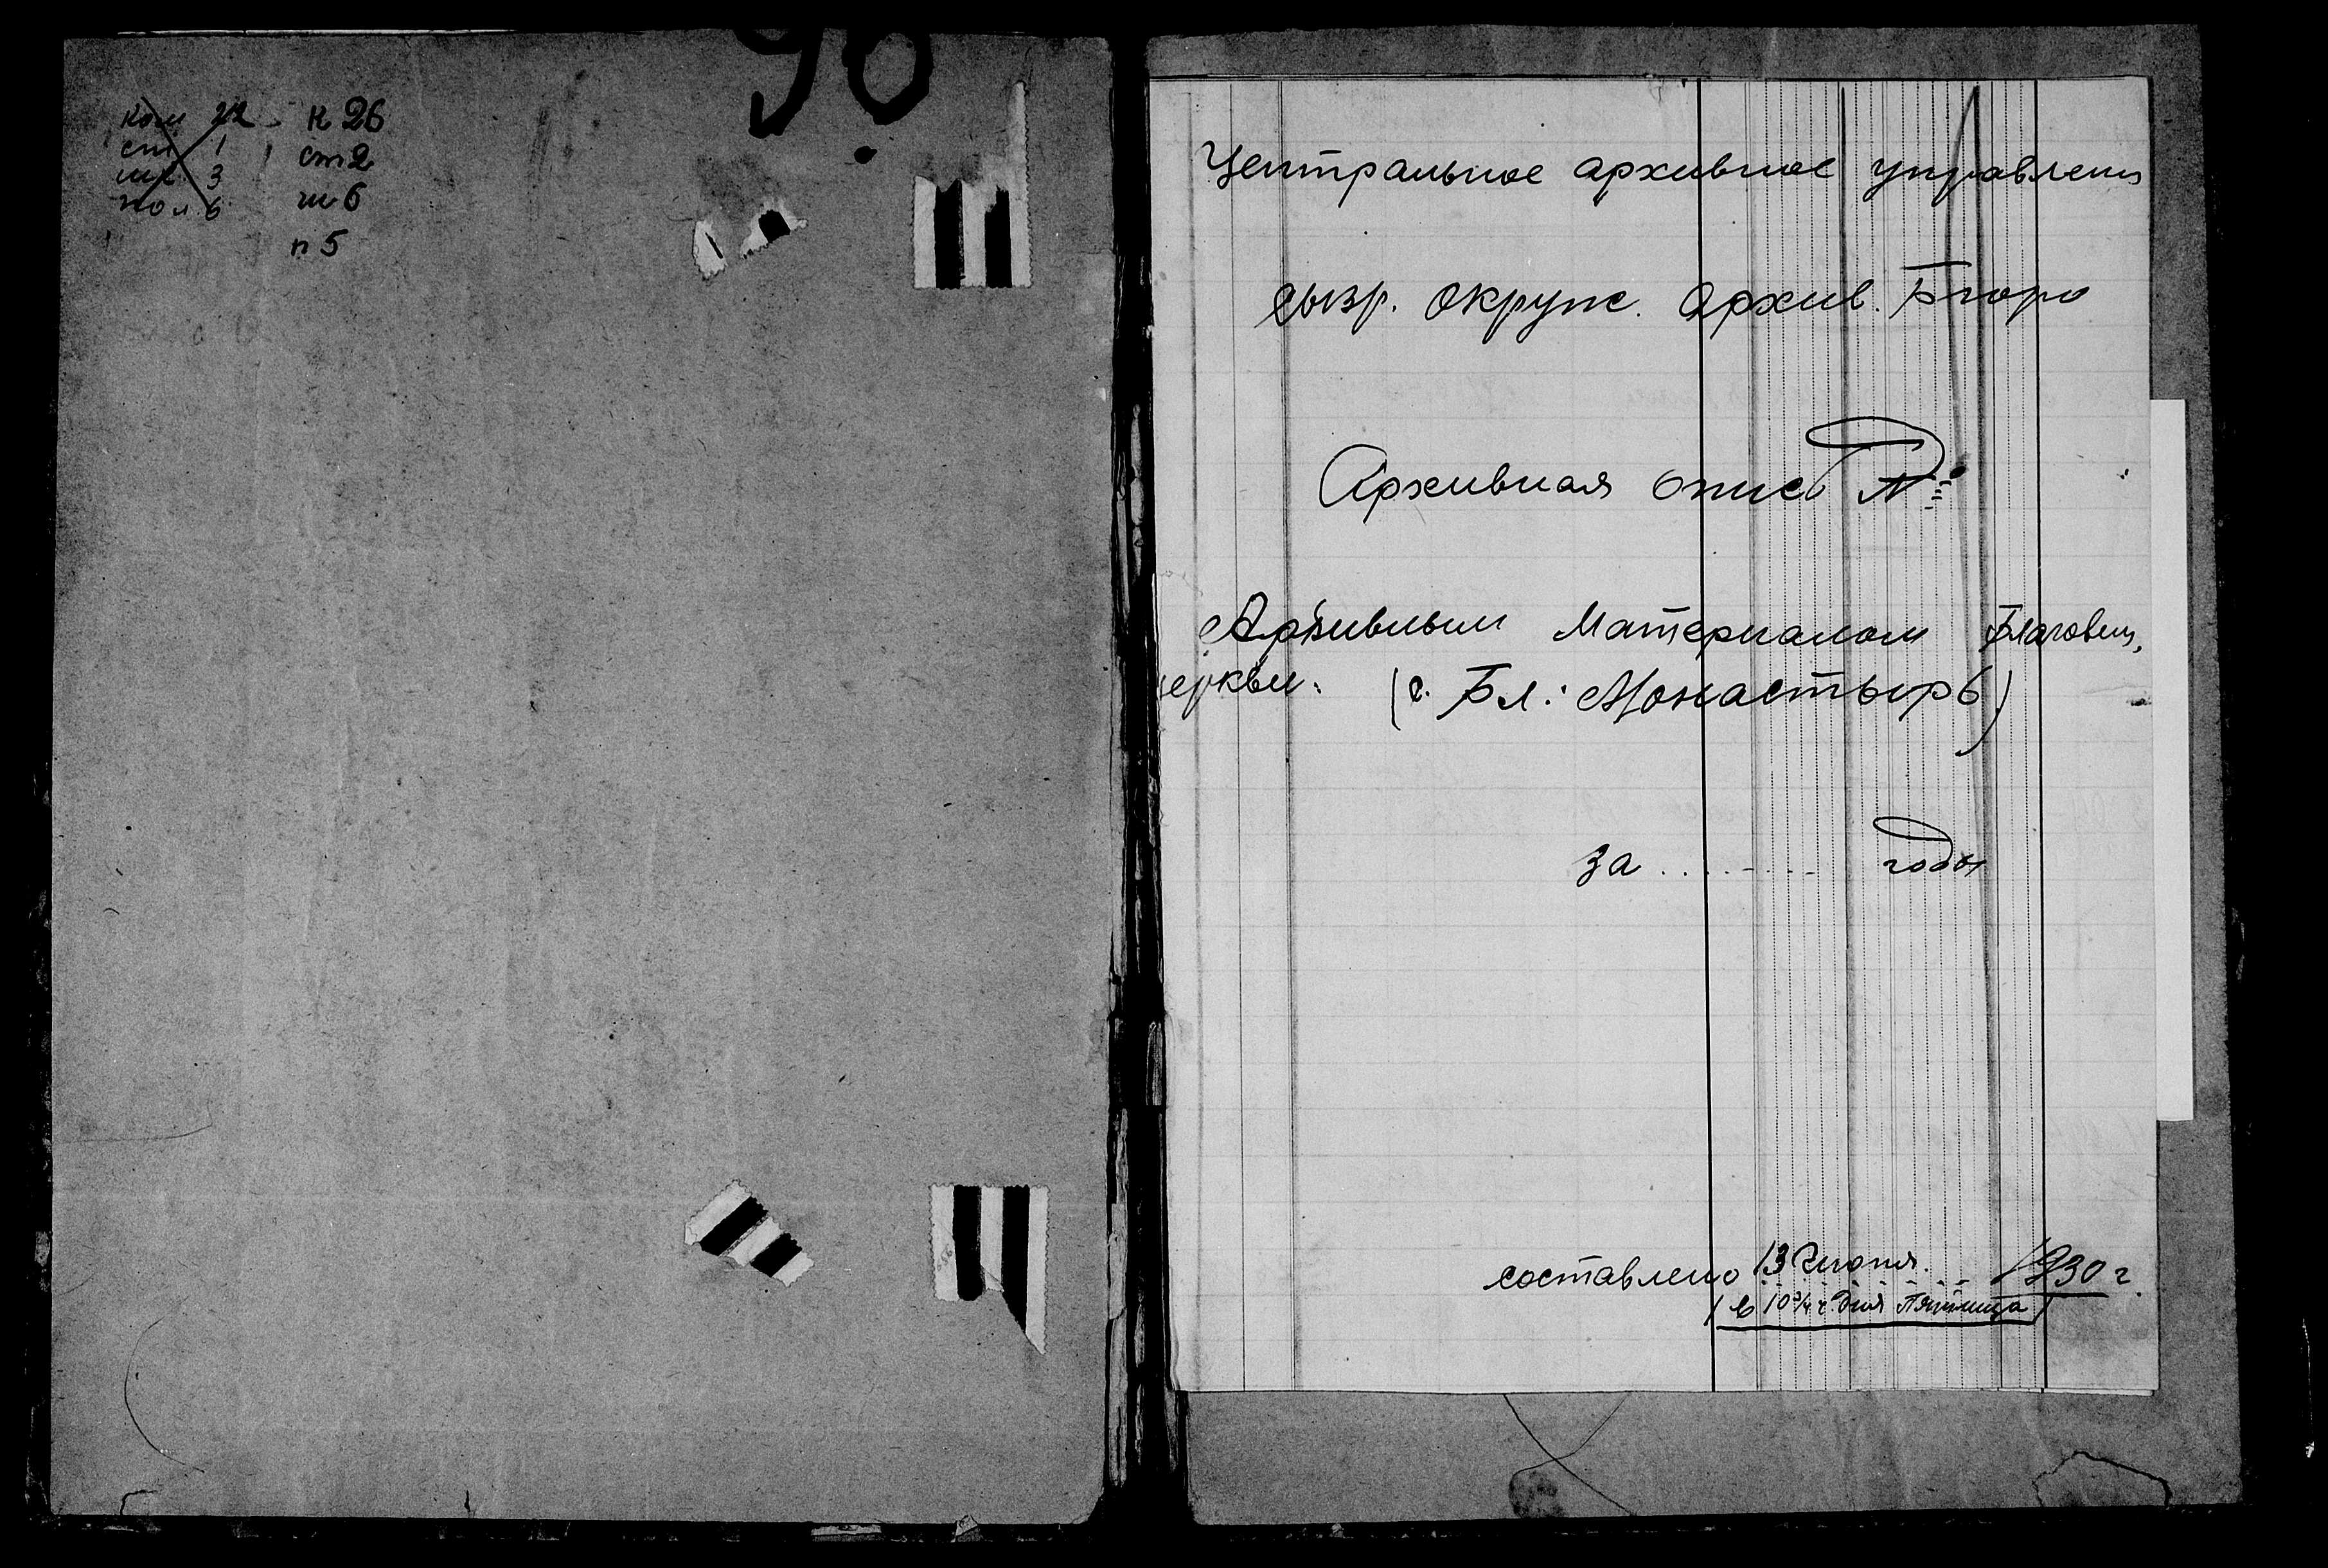 96
ком 22
ст 1
шк 3
пол 6
к 26
ст 2
ш 6
п 5
Центральное архивное управлени
Сызр. окруж. архив. Бюро
Архивная опись №
Архивным Материалом Благовещ.
церкви. (с. Бл: Монастырь)
за ........ годы
составлено 13 Июня. 1930 г.
(в 10 3/4 ч. дня Пятница)